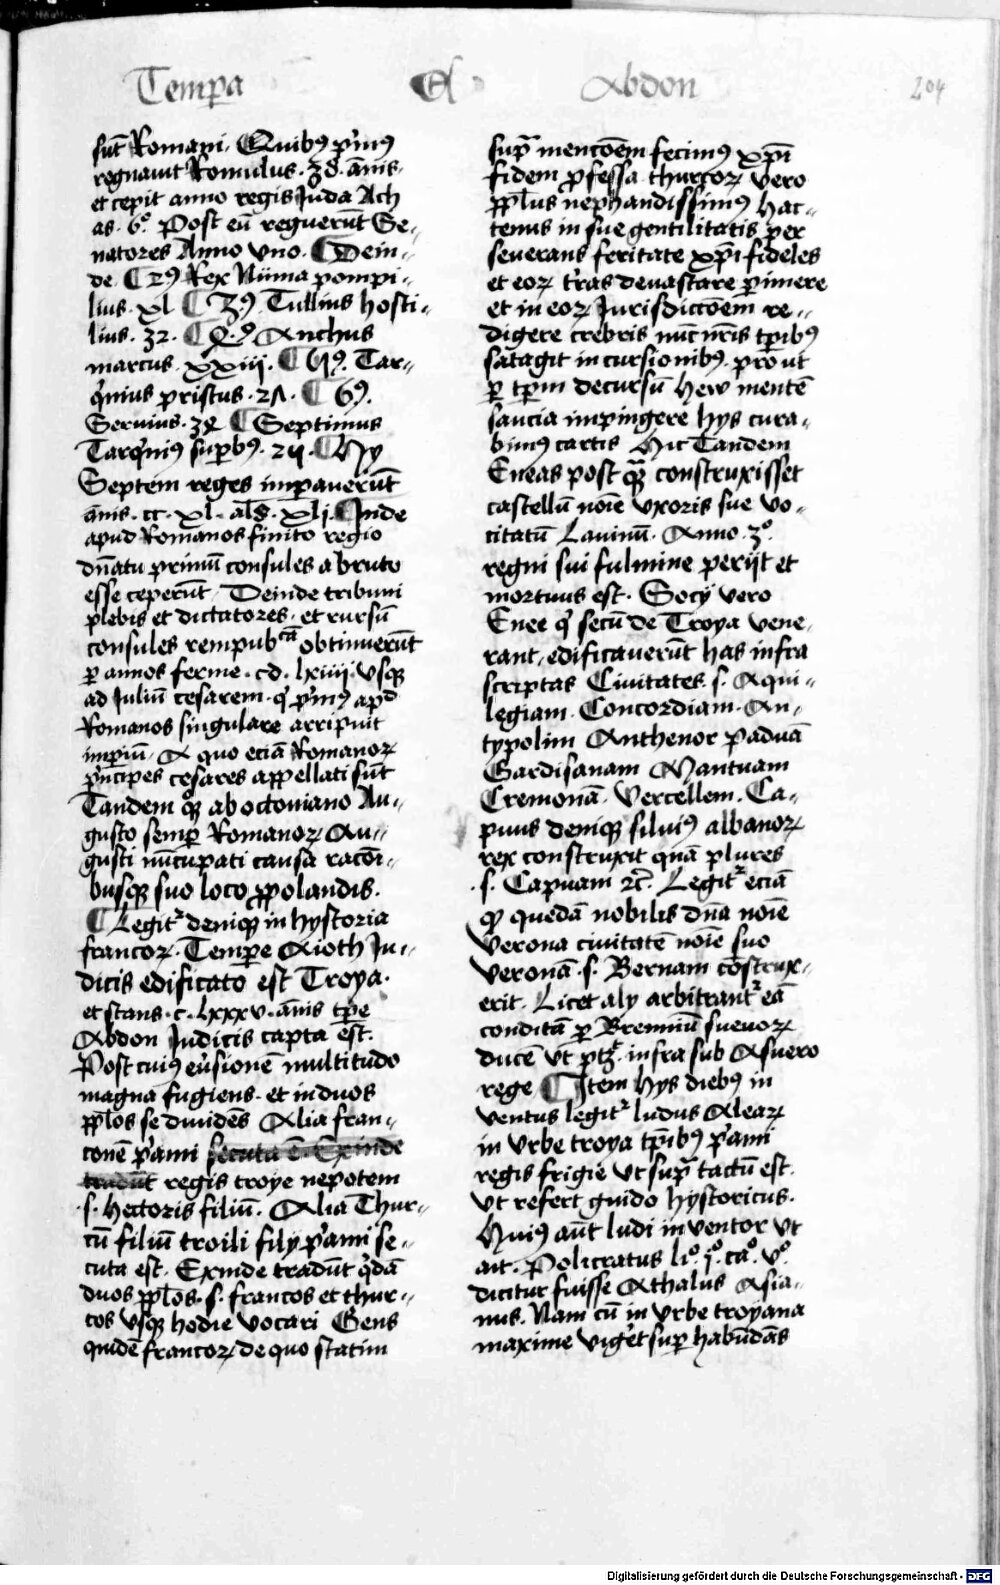 Tempa Et Abdon 204
sūt Romani. Quibꝰ p'mꝰ
regnauit Romulus. 38. ānis.
et cepit anno regis Juda Ach
as. 6º. Post eū reguerūt Se-
natores Anno vno. Dein-
de. 2ꝰ Rex Nūma pompi-
lius. xl 3ꝰ. Tullius hosti-
lius. 32. 4.ꝰ Anchus
marcus. xxiii. 5ꝰ. Tar-
q'nius pristus. 25. 6ꝰ.
Seruius. 34 Septimus
Tarq'niꝰ suꝑbꝰ. 2ij. Hy
Septem reges imꝑauerūt
ānis. cc. xl. als. xli. Inde
apud Romanos finito regio
dn̄atu primū consules a bruto
esse ceperūt. Deinde tribuni
plebis et dictatores. et rursū
consules rempubcā obtinuerūt
ꝑ annos ferme. cd. lxiiii. vsqꝫ
ad Juliū cesarem. q' p'mꝰ apd
Romanos singulare arripuit
imꝑiū. A quo eciā Romanoꝝ
p'ncipes cesares appellati sūt
Tandem qꝫ ab octouiano Au-
gusto semꝑ Romanoꝝ Au-
gusti nūcupati causa racōi-
busqꝫ suo loco ꝓpolandis.
Legit' deniqꝫ in hystoria
francoꝝ. Tempe Aioth Ju-
dicis edificato est Troya.
et stans. c. lxxxv. ānis tꝑe
Abdon Judicis capta est.
Post cuiꝰ eu'sionē multitudo
magna fugiens. et in duos
pplos se diuidēs Alia fran-
conē p'ami secuta ē. Exinde
tradūt regis troye nepotem
.s. hectoris filiū. Alia Thur-
cū filiū troili fily p'ami se-
cuta est. Exinde tradūt q'dā
duos pplos. s. francos et thur-
cos vsqꝫ hodie vocari Gens
quidē francoꝝ de quo statim
supͣ mencōem fecimꝰ xp̄i
fidem ꝓfessa. thurcoꝝ vero
pplus nephandissimꝰ hac-
tenus in sue gentilitatis per
seuerans feritate xp̄i fideles
et eoꝝ t'ras deuastare ꝑimere
et in eoꝝ Jurisdictōem re-
digere crebris nūc nr̄is tꝑibꝰ
satagit in cursionibꝰ. prout
ꝑ tꝑm decursū hew mentē
saucia impingere hys cura-
bimꝰ cartis Hic Tandem
Eneas post qͣꝫ construxisset
castellū noīe vxoris sue vo-
citatū Lauinū. Anno. 3º.
regni sui fulmine perijt et
mortuus est. Socy vero
Enee q' secū de Troya vene-
rant. edificauerūt has infra
scriptas Ciuitates. s. Aqui-
legiam. Concordiam. An-
typolim Anthenor paduā
Gardisanam Mantuam
Cremonā. Vercellem. Ca-
puus deniqꝫ siluiꝰ albanoꝝ
rex construxit quā plures
.s. Capuam ⁊c̄. Legit' eciā
qꝫ quedā nobilis dn̄a noīe
Verona ciuitatē noīe suo
Veronā. s. Bernam cōstrux-
erit. Licet aly arbitrant' eā
conditā ꝑ Brennū sueuoꝝ
ducē vt ptꝫ. infra sub Asuero
rege Item hys diebꝰ in
ventus legit' ludus Aleaꝝ
in vrbe troya tꝑibꝰ p'ami
regis frigie vt supͣ tactū est.
vt refert guido hystoricus.
Huiꝰ aūt ludi inuentor vt
ait. Policratus liº. jº. caº. vº.
dicitur fuisse Athalus Asia-
nus. Nam cū in vrbe troyana
maxime viget suꝑ habūdās
Digitalisierung gefördert durch die Deutsche Forschungsgemeinschaft - DFG